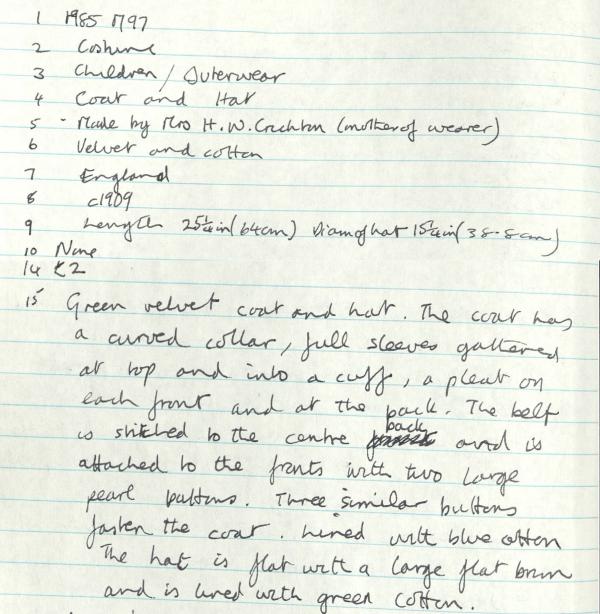 1 1985 M97
2 Costume
3 Children / Outerwear
4 Coat and Hat
5 - Made by Mrs H.W. Crichton (mother of wearer)
6 Velvet and cotton
7 England
8 c1909
9 Length 25¼in (64cm) Diam of hat 15¼in (38.8cm)
10 None
14 £2
15 Green velvet coat and hat. The coat has
a curved collar, full sleeves gathered
at top and into a cuff, a pleat on
each front and at the back. The belt
is stitched to the centre back and is
attached to the fronts with two large
pearl buttons. Three similar buttons
fasten the coat. Lined with blue cotton
The hat is flat with a large flat brim
and is lined with green cotton.